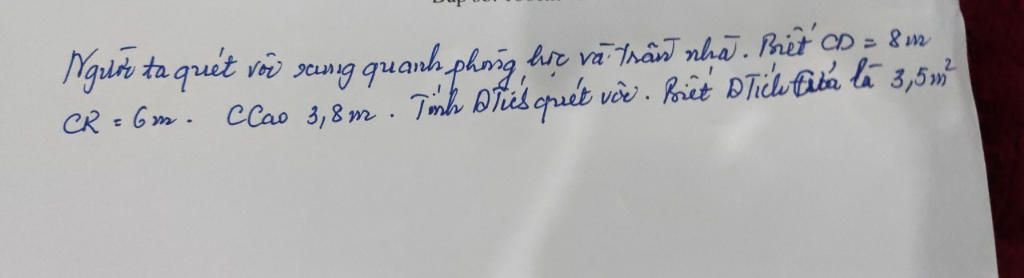 Người ta quét vôi xung quanh phòng học và trần nhà. Biết CD = 8m
CR = 6m. CCao 3,8m. Tính DTích quét vôi. Biết DTích cửa là 3,5m²